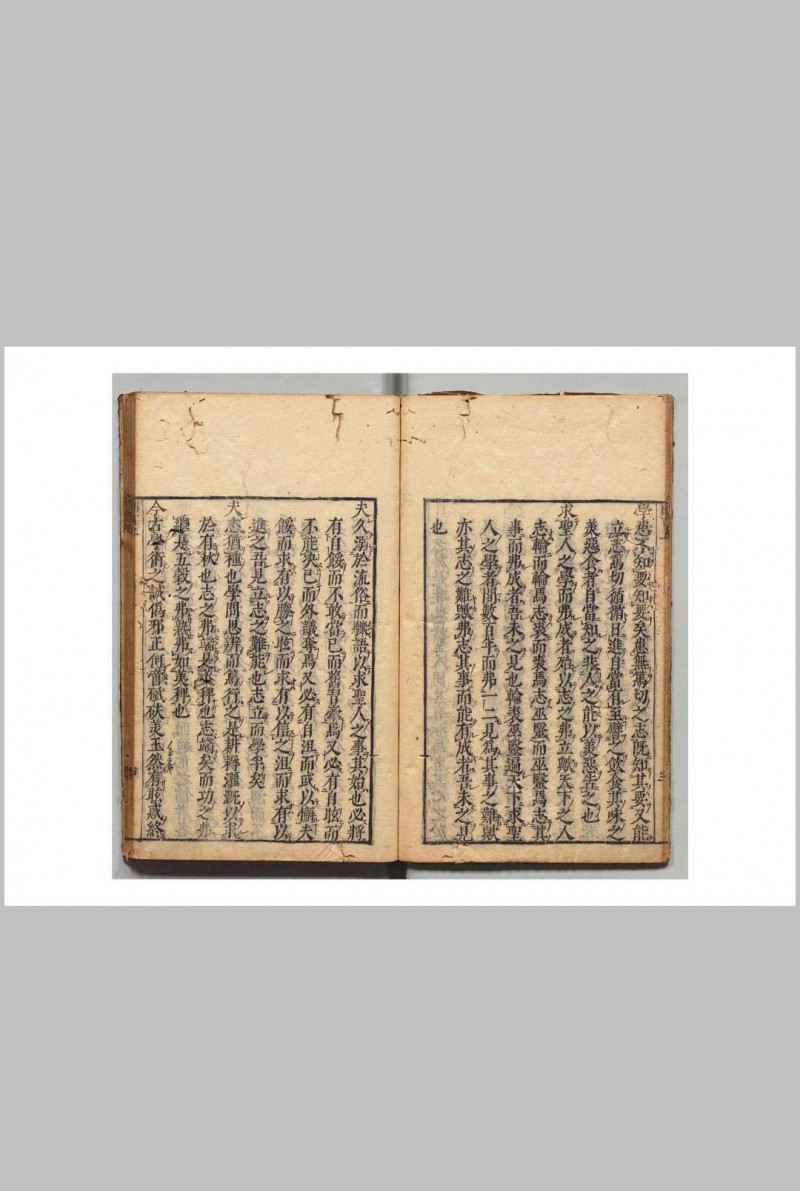 學患不知要知要矣患無篤切之志既知其要又能
立志篤切循循日進自當有至譬之飲食其味之
美惡食者自當知之非人之能以美惡告之也
求聖人之學而弗成者殆以志之弗立歟天下之人
志輪而輪焉志裘而裘焉志巫醫而巫醫焉志其
事而弗成者吾未之見也輪裘巫醫遍天下求聖
人之學者間數百年而弗一二見為其事之難歟
亦其志之難歟弗志其事而能有成者吾未之見
也
夫久溺於流俗而驟語以求聖人之事其始也必將
有自餒而不敢當已而舊習牽焉又必有自眩而
不能決已而外議奪焉又必有自沮而或以懈夫
餒而求有以勝之眩而求有以信之沮而求有以
進之吾見立志之難能也志立而學半矣
夫志猶種也學問思辨而篤行之是耕耨灌溉以求
於有秋也志之弗端是荑稗也志端矣而功之弗
繼是五穀之弗熟弗如荑稗也
今古學術之誠偽邪正何啻碔砆美玉然有眩惑終